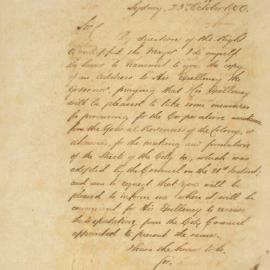 Sydney, 23rd October
Sir
By direction of the Right
the Mayor I do myself
the honor to transmit to you the copy
of an Address to His Excellency the
Governor, praying that His Excellency
will be pleased to take some measures
for procuring for the Corporation
from the General Revenues of the Colony,
for the making and
of the Streets of the City &c, which was
adopted by the Council on the 21st Instant,
and am to request that you will be
pleased to inform me when it will be
convenient for His Excellency to receive
the deputation from the City Council
appointed to present the same.
I have the honor to be
Sir,